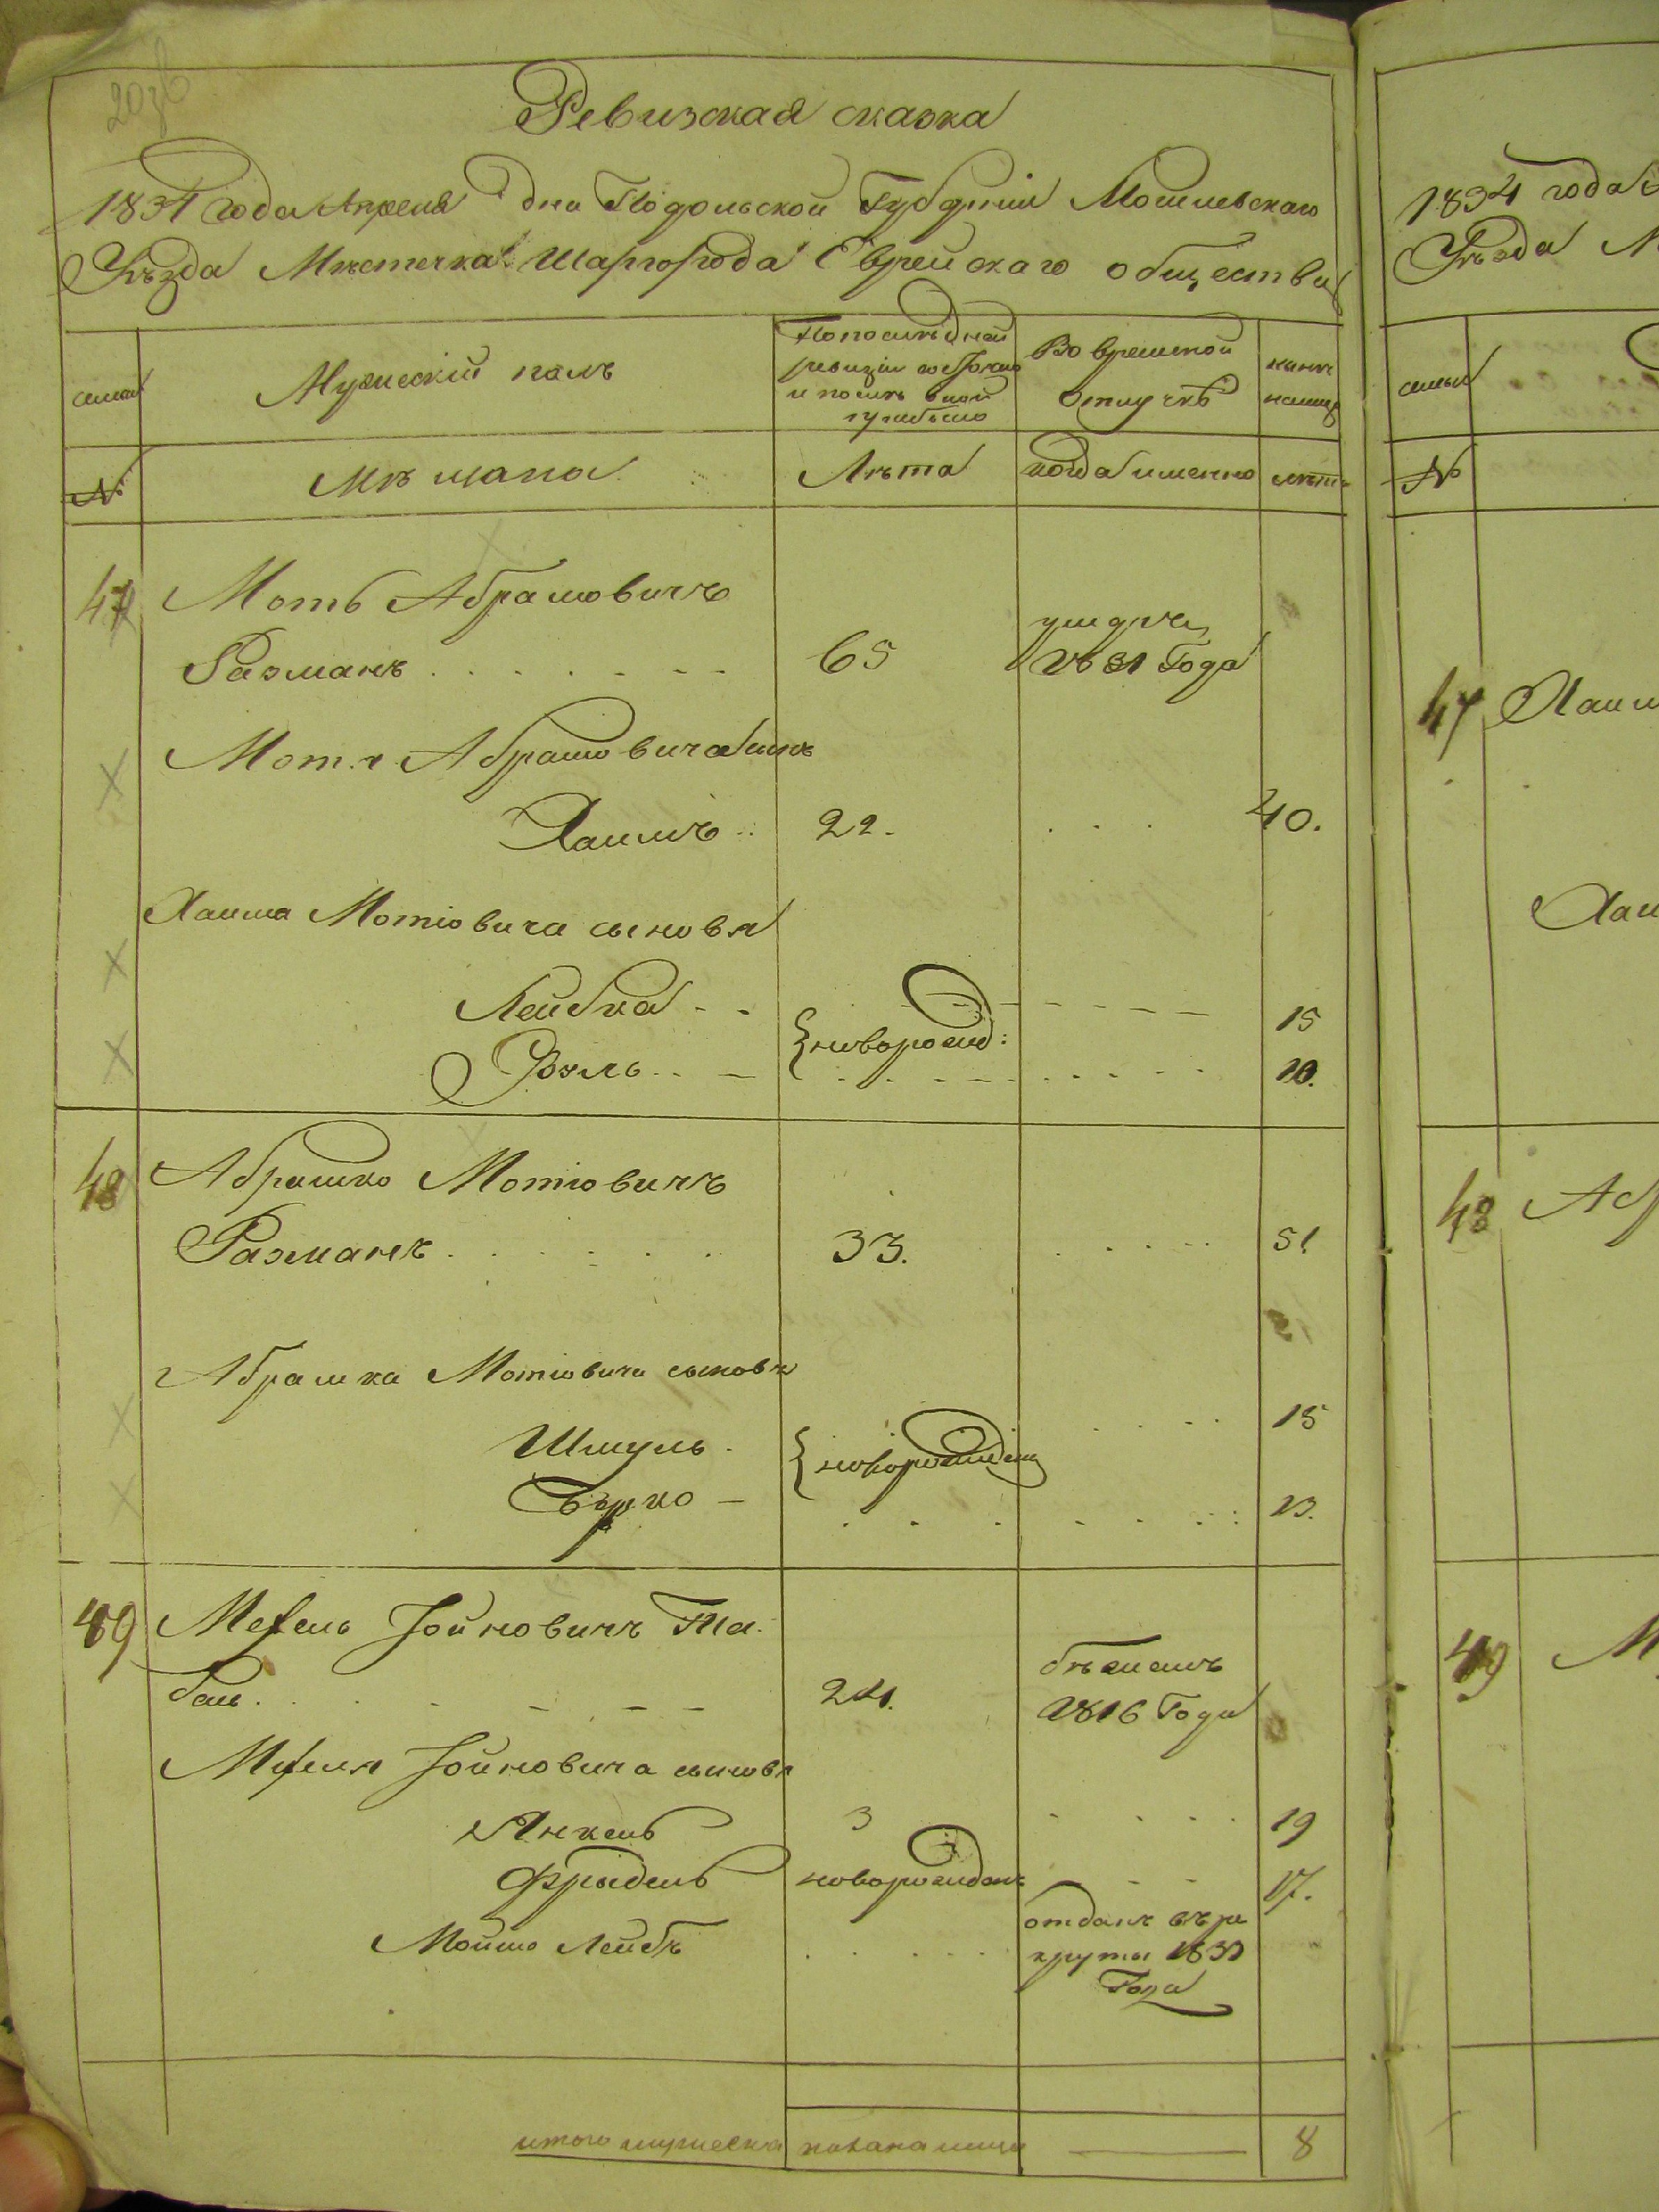 Ревизская сказка
1834 года Апреля дня Подольской Губерніи Могилевскаго
Уѣзда Мѣстечка Шаргорода Еврейскаго общества
семьи
Мужескій полъ
По послѣдней
ревизіи состояло
и послѣ оной
прибыло
Во временной
отлучкѣ
нынѣ
налицо
№
Мѣщане
Лѣта
когда именно
лѣта
47
Моть Абрамовичъ
Разманъ
65
умерч.
1831 Года
Мотя Абрамовича сынъ
Хаимъ
22.
40.
Хаима Мотіовича сыновя
Лейбка
новорожд:
15
Вэль
10.
48
Абрамко Мотіовичъ
Разманъ
33.
51
Абрамка Мотіовича сыновя
Шмуль
новорожден
15
Бэрко
13.
49
Мехель Іойновичъ
24.
бѣжалъ
1816 Года
Мехеля Іойновича сыновя
Янкель
3
19
Фрыдель
новорожденъ
17.
Мойшо Лейбъ
отданъ въ ре
круты 1831
Года
итого мужеска пола на лицо
8
1834 года
Уѣзда М
семьи
№
47 Хаим
Хаи
48 Аб
49 М